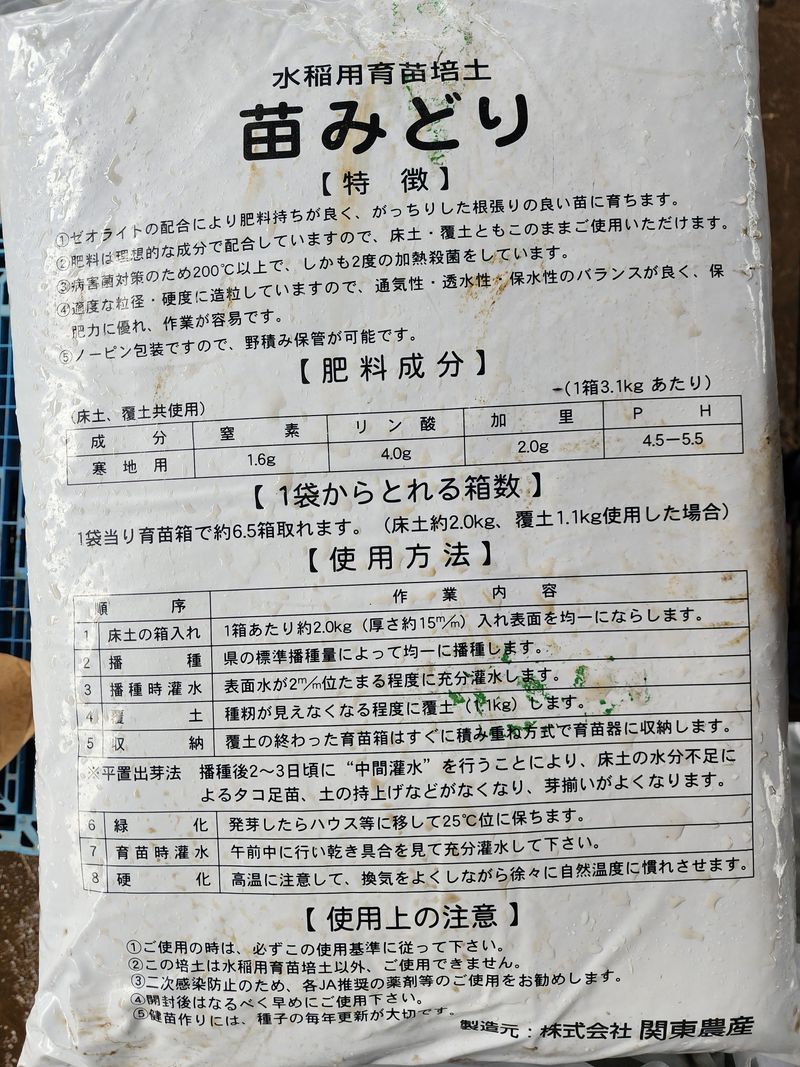 水稲用育苗培土
苗みどり
【特 徴】
①ゼオライトの配合により肥料持ちが良く、がっちりした根張りの良い苗に育ちます。
②肥料は理想的な成分で配合していますので、床土・覆土ともこのままご使用いただけます。
③病害菌対策のため200℃以上で、しかも2度の加熱殺菌をしています。
④適度な粒径・硬度に造粒していますので、通気性・透水性・保水性のバランスが良く、保
肥力に優れ、作業が容易です。
⑤ノーピン包装ですので、野積み保管が可能です。
【肥料成分】
(床土、覆土共使用) (1箱3.1kg あたり)
成 分 窒 素 リ ン 酸 加 里 P H
寒 地 用 1.6g 4.0g 2.0g 4.5－5.5
【1袋からとれる箱数】
1袋当り育苗箱で約6.5箱取れます。（床土約2.0kg、覆土1.1kg使用した場合）
【使用方法】
順 序 作 業 内 容
1 床土の箱入れ 1箱あたり約2.0kg（厚さ約15m/m）入れ表面を均一にならします。
2 播 種 県の標準播種量によって均一に播種します。
3 播種時灌水 表面水が2m/m位たまる程度に充分灌水します。
4 覆 土 種籾が見えなくなる程度に覆土（1.1kg）します。
5 収 納 覆土の終わった育苗箱はすぐに積み重ね方式で育苗器に収納します。
※平置出芽法 播種後2～3日頃に“中間灌水”を行うことにより、床土の水分不足に
よるタコ足苗、土の持上げなどがなくなり、芽揃いがよくなります。
6 緑 化 発芽したらハウス等に移して25℃位に保ちます。
7 育苗時灌水 午前中に行い乾き具合を見て充分灌水して下さい。
8 硬 化 高温に注意して、換気をよくしながら徐々に自然温度に慣れさせます。
【使用上の注意】
①ご使用の時は、必ずこの使用基準に従って下さい。
②この培土は水稲用育苗培土以外、ご使用できません。
③二次感染防止のため、各JA推奨の薬剤等のご使用をお勧めします。
④開封後はなるべく早めにご使用下さい。
⑤健苗作りには、種子の毎年更新が大切です。
製造元：株式会社 関東農産